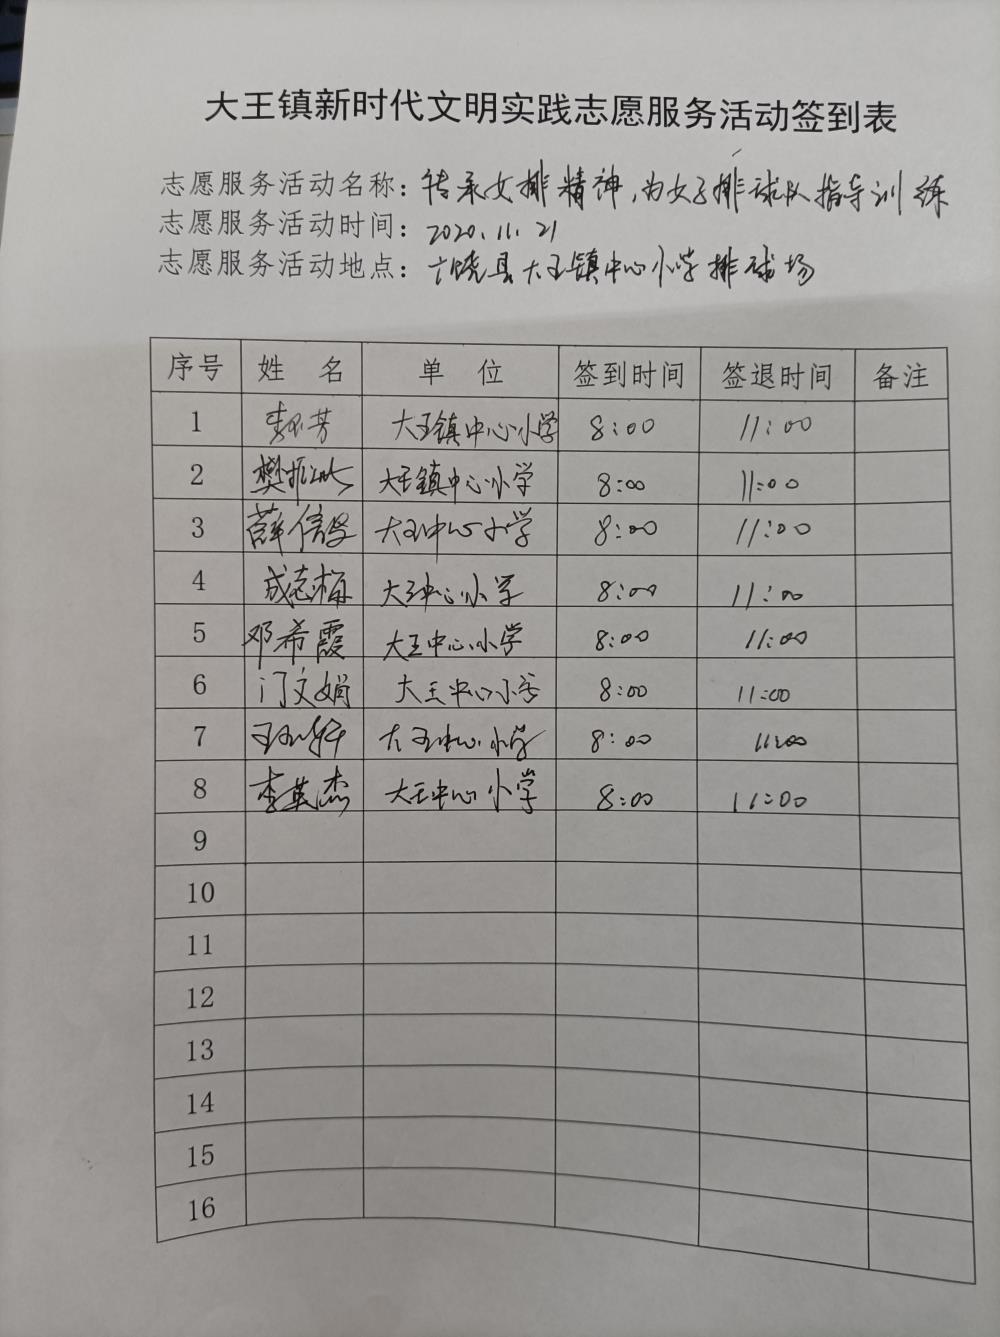 大王镇新时代文明实践志愿服务活动签到表
志愿服务活动名称：传承女排精神，为女子排球队指导训练
志愿服务活动时间：2020.11.21
志愿服务活动地点：广饶县大王镇中心小学排球场
序号 姓 名 单 位 签到时间 签退时间 备注
1 大王镇中心小学 8:00 11:00
2 樊 大王镇中心小学 8:00 11:00
3 薛信 大王中心小学 8:00 11:00
4 成志梅 大王中心小学 8:00 11:00
5 邓希霞 大王中心小学 8:00 11:00
6 门文娟 大王中心小学 8:00 11:00
7 王 大王中心小学 8:00 11:00
8 李英杰 大王中心小学 8:00 11:00
9
10
11
12
13
14
15
16